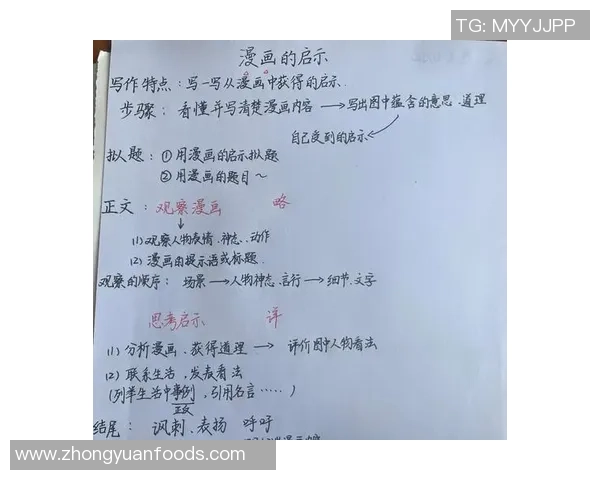 TG: MYYJJPP
漫画的启示
写作特点：写一写从漫画中获得的启示.
步骤：看懂并写清楚漫画内容→写出图中蕴含的意思.道理
自己受到的启示
拟人题：①用漫画的启示拟题
②用漫画的题目～
正文：观察漫画 略
↓
(1)观察人物表情.神态.动作
(2)漫画由提示语或标题.
观察的顺序：场景→人物神态.言行→细节.文字
思考启示 详
(1)分析漫画.获得道理→评价图中人物看法
(2)联系生活，发表看法
(列举生活中事例，引用名言……)
正反
结尾：讽刺、表扬 呼吁
www.zhongyuanfoods.com